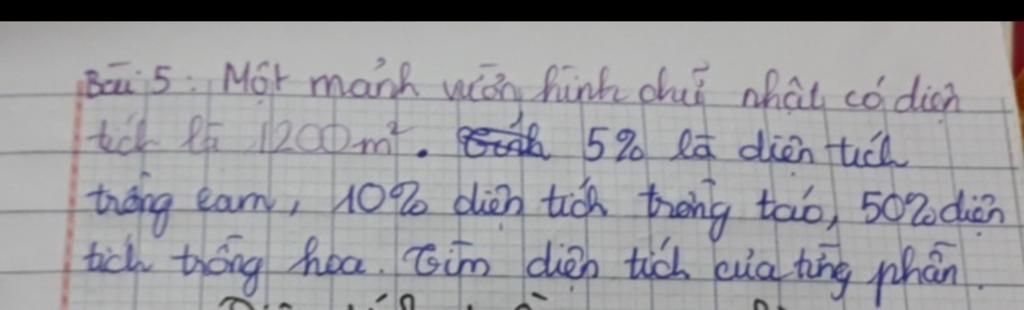 Bài 5: Một mảnh vườn hình chữ nhật có diện
tích là 1200m². 5% là diện tích
trồng cam, 10% diện tích trồng táo, 50% diện
tích trồng hoa. Tìm diện tích của từng phần.